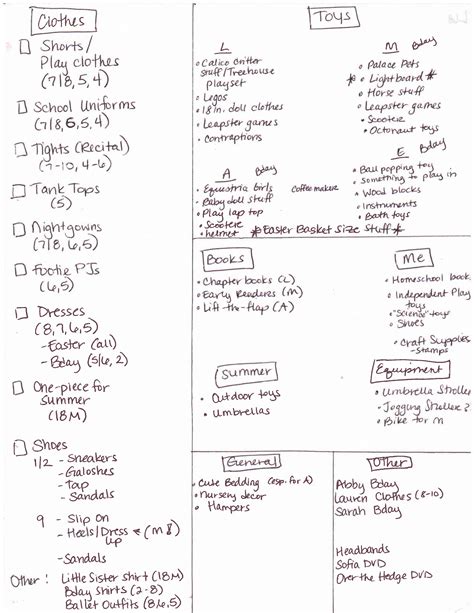 Clothes
Shorts/
Play clothes
(7/8, 5, 4)
School Uniforms
(7/8, 6, 5, 4)
Tights (Recital)
(7-10, 4-6)
Tank Tops
(5)
Nightgowns
(7/8, 6, 5)
Footie PJs
(6,5)
Dresses
(8,7,6,5)
- Easter (all)
- Bday (5/6, 2)
One-piece for
Summer
(18M)
Shoes
1/2 - Sneakers
- Galoshes
- Tap
- Sandals
9 - Slip On
- Heels/Dress up (M 8)
- Sandals
Other: Little Sister Shirt (18M)
Bday Shirts (2-8)
Ballet Outfits (8,6,5)
Toys
L
• Calico Critter
stuff/Treehouse
playset
• Legos
• 18in. doll clothes
• Leapster games
• Contraptions
M Bday
• Palace Pets
* • Lightboard *
• Horse stuff
• Leapster games
• Scooter
• Octonaut toys
A Bday
• Equestria Girls
• Baby doll stuff
• Play lap top
• Scooter
• helmet
coffee maker
E Bday
• Ball popping toy
• Something to play in
• Wood blocks
• Instruments
• Bath toys
* Easter Basket Size Stuff *
Books
• Chapter books (L)
• Early Readers (M)
• Lift-the-flap (A)
Me
• Homeschool books
• Independent Play
toys
• "Science" toys
• Shoes
• Craft Supplies
- Stamps
Summer
• Outdoor toys
• Umbrellas
Equipment
• Umbrella Stroller
• Jogging Stroller?
• Bike for M
General
• Cute Bedding (esp. for A)
• Nursery decor
• Hampers
Other
Abby Bday
Lauren Clothes (8-10)
Sarah Bday
Headbands
Sofia DVD
Over the Hedge DVD